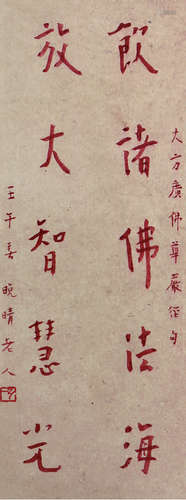 大方廣佛華嚴經句
飲諸佛法海
放大智慧光
壬午春晚晴老人